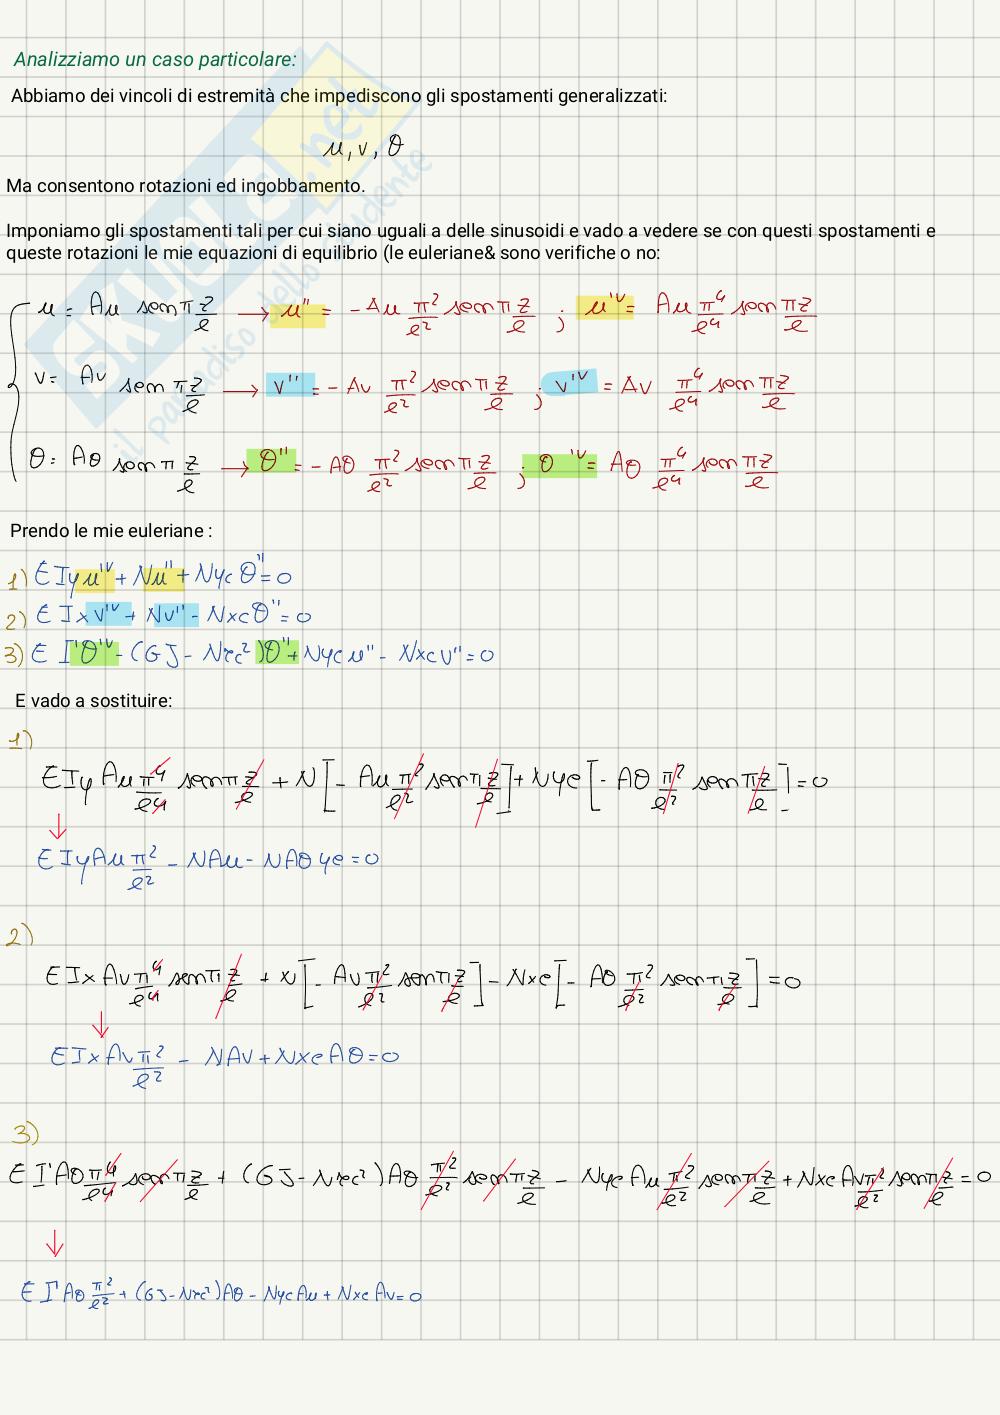 Analizziamo un caso particolare:
Abbiamo dei vincoli di estremità che impediscono gli spostamenti generalizzati:
u, v, θ
Ma consentono rotazioni ed ingobbamento.
Imponiamo gli spostamenti tali per cui siano uguali a delle sinusoidi e vado a vedere se con questi spostamenti e
queste rotazioni le mie equazioni di equilibrio (le euleriane& sono verifiche o no:
u = Au sen π z/l → u'' = - Au π²/l² sen π z/l ; u'ᵛ = Au π⁴/l⁴ sen π z/l
v = Av sen π z/l → v'' = - Av π²/l² sen π z/l ; v'ᵛ = Av π⁴/l⁴ sen π z/l
θ = Aθ sen π z/l → θ'' = - Aθ π²/l² sen π z/l ; θ'ᵛ = Aθ π⁴/l⁴ sen π z/l
Prendo le mie euleriane :
1) EIy u'ᵛ + Nu'' + Nyc θ'' = 0
2) EIx v'ᵛ + Nv'' - Nxc θ'' = 0
3) EΓ θ'ᵛ - (GJ - Nrc²) θ'' + Nyc u'' - Nxc v'' = 0
E vado a sostituire:
1)
EIy Au π⁴/l⁴ sen π z/l + N [ - Au π²/l² sen π z/l ] + Nyc [ - Aθ π²/l² sen π z/l ] = 0
↓
EIy Au π²/l² - NAu - NAθ yc = 0
2)
EIx Av π⁴/l⁴ sen π z/l + N [ - Av π²/l² sen π z/l ] - Nxc [ - Aθ π²/l² sen π z/l ] = 0
↓
EIx Av π²/l² - NAv + Nxc Aθ = 0
3)
EΓ Aθ π⁴/l⁴ sen π z/l + (GJ - Nrc²) Aθ π²/l² sen π z/l - Nyc Au π²/l² sen π z/l + Nxc Av π²/l² sen π z/l = 0
↓
EΓ Aθ π²/l² + (GJ - Nrc²) Aθ - Nyc Au + Nxc Av = 0
SKUOLA.net
il paradiso dello studente